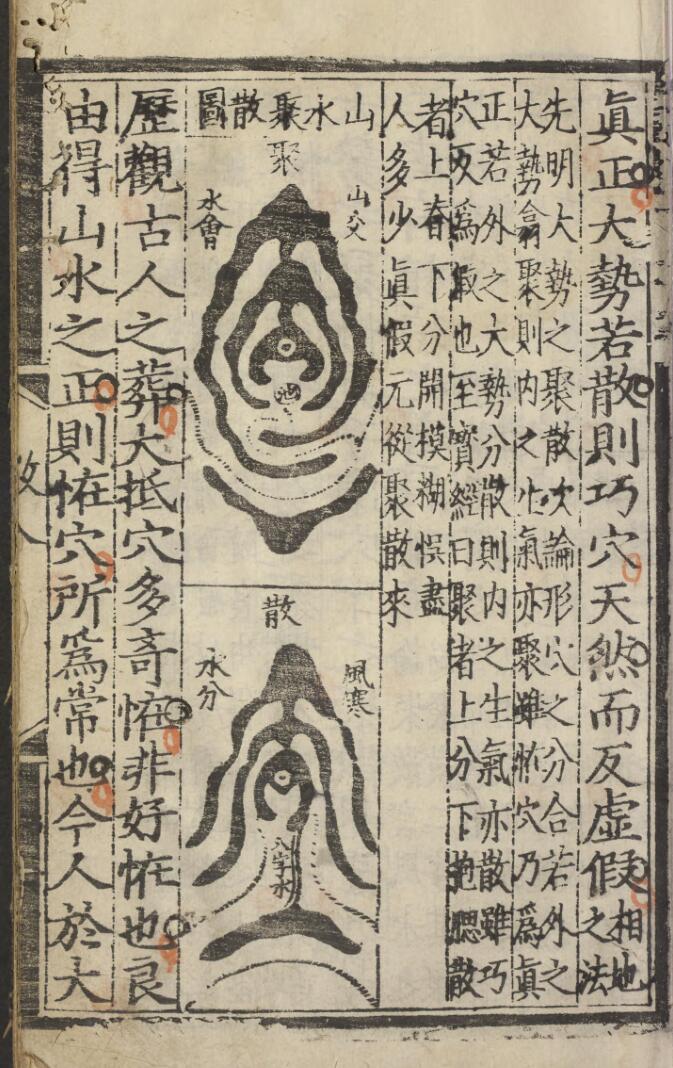 眞正大勢若散則巧穴天然而反虛假相地之法
先明大勢之聚散次論形穴之分合若外之
大勢翕聚則内之生氣亦聚雖恠穴乃爲眞
正若外之大勢分散則内之生氣亦散雖巧
穴反爲假也至寳經曰聚者上分下抱聴散
者上舂下分開模糊悮盡
人多少眞假元從聚散來
山水聚散圖
聚
山交
水會
池
散
風寒
水分
八字水
歷觀古人之葬大抵穴多竒恠非好恠也良
由得山水之正則恠穴所爲常也今人於大